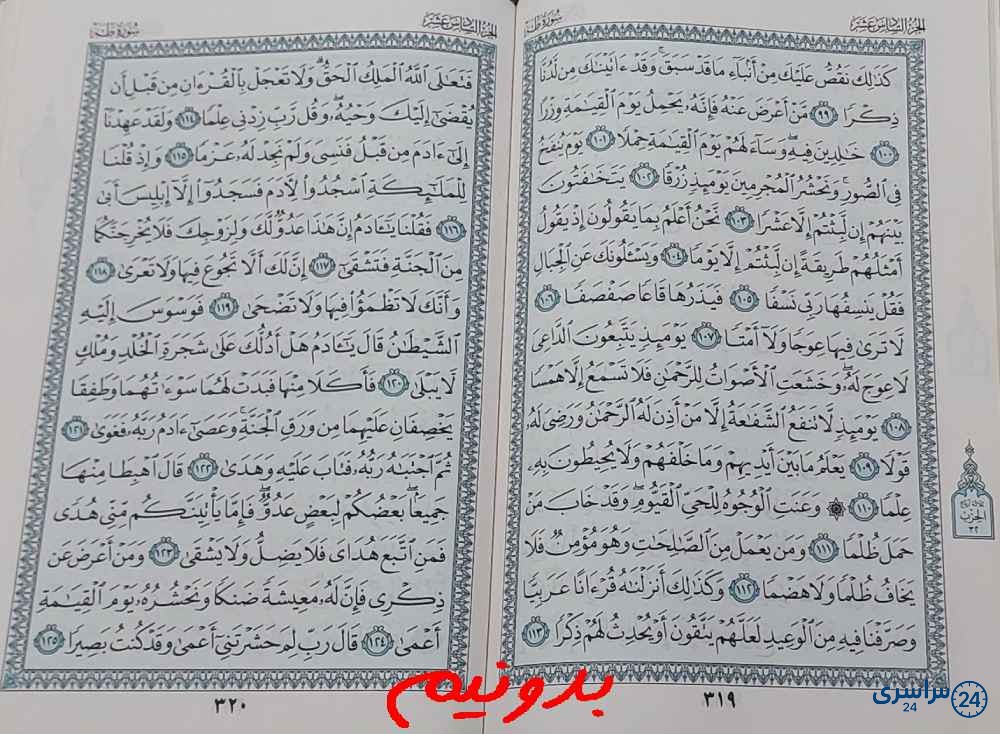 الجزء السادس عشر
سورة طه
كَذَٰلِكَ نَقُصُّ عَلَيْكَ مِنْ أَنۢبَآءِ مَا قَدْ سَبَقَ ۚ وَقَدْ ءَاتَيْنَٰكَ مِن لَّدُنَّا
ذِكْرًا ﴿٩٩﴾ مَّنْ أَعْرَضَ عَنْهُ فَإِنَّهُۥ يَحْمِلُ يَوْمَ ٱلْقِيَٰمَةِ وِزْرًا
﴿١٠٠﴾ خَٰلِدِينَ فِيهِ ۖ وَسَآءَ لَهُمْ يَوْمَ ٱلْقِيَٰمَةِ حِمْلًا ﴿١٠١﴾ يَوْمَ يُنفَخُ
فِى ٱلصُّورِ ۚ وَنَحْشُرُ ٱلْمُجْرِمِينَ يَوْمَئِذٍ زُرْقًا ﴿١٠٢﴾ يَتَخَٰفَتُونَ
بَيْنَهُمْ إِن لَّبِثْتُمْ إِلَّا عَشْرًا ﴿١٠٣﴾ نَّحْنُ أَعْلَمُ بِمَا يَقُولُونَ إِذْ يَقُولُ
أَمْثَلُهُمْ طَرِيقَةً إِن لَّبِثْتُمْ إِلَّا يَوْمًا ﴿١٠٤﴾ وَيَسْـَٔلُونَكَ عَنِ ٱلْجِبَالِ
فَقُلْ يَنسِفُهَا رَبِّى نَسْفًا ﴿١٠٥﴾ فَيَذَرُهَا قَاعًا صَفْصَفًا ﴿١٠٦﴾
لَّا تَرَىٰ فِيهَا عِوَجًا وَلَآ أَمْتًا ﴿١٠٧﴾ يَوْمَئِذٍ يَتَّبِعُونَ ٱلدَّاعِىَ
لَا عِوَجَ لَهُۥ ۖ وَخَشَعَتِ ٱلْأَصْوَاتُ لِلرَّحْمَٰنِ فَلَا تَسْمَعُ إِلَّا هَمْسًا
﴿١٠٨﴾ يَوْمَئِذٍ لَّا تَنفَعُ ٱلشَّفَٰعَةُ إِلَّا مَنْ أَذِنَ لَهُ ٱلرَّحْمَٰنُ وَرَضِىَ لَهُۥ
قَوْلًا ﴿١٠٩﴾ يَعْلَمُ مَا بَيْنَ أَيْدِيهِمْ وَمَا خَلْفَهُمْ وَلَا يُحِيطُونَ بِهِۦ
عِلْمًا ﴿١١٠﴾ ۞ وَعَنَتِ ٱلْوُجُوهُ لِلْحَىِّ ٱلْقَيُّومِ ۖ وَقَدْ خَابَ مَنْ
حَمَلَ ظُلْمًا ﴿١١١﴾ وَمَن يَعْمَلْ مِنَ ٱلصَّٰلِحَٰتِ وَهُوَ مُؤْمِنٌ فَلَا
يَخَافُ ظُلْمًا وَلَا هَضْمًا ﴿١١٢﴾ وَكَذَٰلِكَ أَنزَلْنَٰهُ قُرْءَانًا عَرَبِيًّا
وَصَرَّفْنَا فِيهِ مِنَ ٱلْوَعِيدِ لَعَلَّهُمْ يَتَّقُونَ أَوْ يُحْدِثُ لَهُمْ ذِكْرًا ﴿١١٣﴾
٣١٩
الحزب
٣٢
الجزء السادس عشر
سورة طه
فَتَعَٰلَى ٱللَّهُ ٱلْمَلِكُ ٱلْحَقُّ ۗ وَلَا تَعْجَلْ بِٱلْقُرْءَانِ مِن قَبْلِ أَن
يُقْضَىٰٓ إِلَيْكَ وَحْيُهُۥ ۖ وَقُل رَّبِّ زِدْنِى عِلْمًا ﴿١١٤﴾ وَلَقَدْ عَهِدْنَآ
إِلَىٰٓ ءَادَمَ مِن قَبْلُ فَنَسِىَ وَلَمْ نَجِدْ لَهُۥ عَزْمًا ﴿١١٥﴾ وَإِذْ قُلْنَا
لِلْمَلَٰٓئِكَةِ ٱسْجُدُوا۟ لِـَٔادَمَ فَسَجَدُوٓا۟ إِلَّآ إِبْلِيسَ أَبَىٰ
﴿١١٦﴾ فَقُلْنَا يَٰٓـَٔادَمُ إِنَّ هَٰذَا عَدُوٌّ لَّكَ وَلِزَوْجِكَ فَلَا يُخْرِجَنَّكُمَا
مِنَ ٱلْجَنَّةِ فَتَشْقَىٰٓ ﴿١١٧﴾ إِنَّ لَكَ أَلَّا تَجُوعَ فِيهَا وَلَا تَعْرَىٰ ﴿١١٨﴾
وَأَنَّكَ لَا تَظْمَؤُا۟ فِيهَا وَلَا تَضْحَىٰ ﴿١١٩﴾ فَوَسْوَسَ إِلَيْهِ
ٱلشَّيْطَٰنُ قَالَ يَٰٓـَٔادَمُ هَلْ أَدُلُّكَ عَلَىٰ شَجَرَةِ ٱلْخُلْدِ وَمُلْكٍ
لَّا يَبْلَىٰ ﴿١٢٠﴾ فَأَكَلَا مِنْهَا فَبَدَتْ لَهُمَا سَوْءَٰتُهُمَا وَطَفِقَا
يَخْصِفَانِ عَلَيْهِمَا مِن وَرَقِ ٱلْجَنَّةِ ۚ وَعَصَىٰٓ ءَادَمُ رَبَّهُۥ فَغَوَىٰ ﴿١٢١﴾
ثُمَّ ٱجْتَبَٰهُ رَبُّهُۥ فَتَابَ عَلَيْهِ وَهَدَىٰ ﴿١٢٢﴾ قَالَ ٱهْبِطَا مِنْهَا
جَمِيعًۢا ۖ بَعْضُكُمْ لِبَعْضٍ عَدُوٌّ ۖ فَإِمَّا يَأْتِيَنَّكُم مِّنِّى هُدًى
فَمَنِ ٱتَّبَعَ هُدَاىَ فَلَا يَضِلُّ وَلَا يَشْقَىٰ ﴿١٢٣﴾ وَمَنْ أَعْرَضَ عَن
ذِكْرِى فَإِنَّ لَهُۥ مَعِيشَةً ضَنكًا وَنَحْشُرُهُۥ يَوْمَ ٱلْقِيَٰمَةِ
أَعْمَىٰ ﴿١٢٤﴾ قَالَ رَبِّ لِمَ حَشَرْتَنِىٓ أَعْمَىٰ وَقَدْ كُنتُ بَصِيرًا ﴿١٢٥﴾
٣٢٠
بدونیم
سراسری 24
24